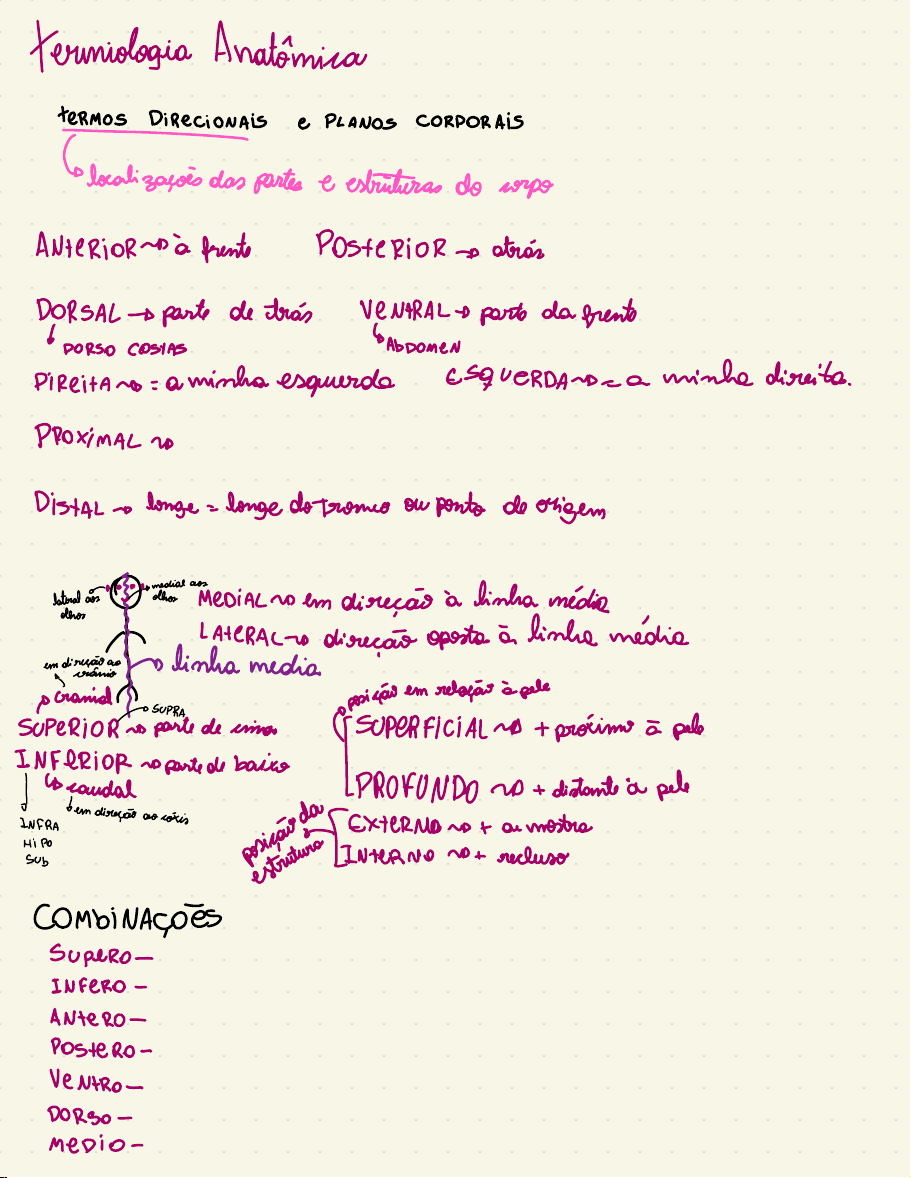 Termiologia Anatômica
termos Direcionais e Planos Corporais
localizações das partes e estruturas do corpo
Anterior à frente Posterior atrás
Dorsal parte de trás Ventral parte da frente
Dorso costas Abdomen
Direita = a minha esquerda Esquerda = a minha direita.
Proximal
Distal longe = longe do tronco ou ponto de origem
lateral aos olhos medial aos olhos
Medial em direção à linha média
Lateral direção oposta à linha média
linha media
em direção ao crânio
cranial
supra
posição em relação à pele
Superior parte de cima
Superficial + próximo à pele
Inferior parte de baixo
caudal
Profundo + distante à pele
em direção ao cóxis
Infra
Hipo
Sub
posição da estrutura
Externo + a mostra
Interno + recluso
Combinações
Supero -
Infero -
Antero -
Postero -
Ventro -
Dorso -
Medio -